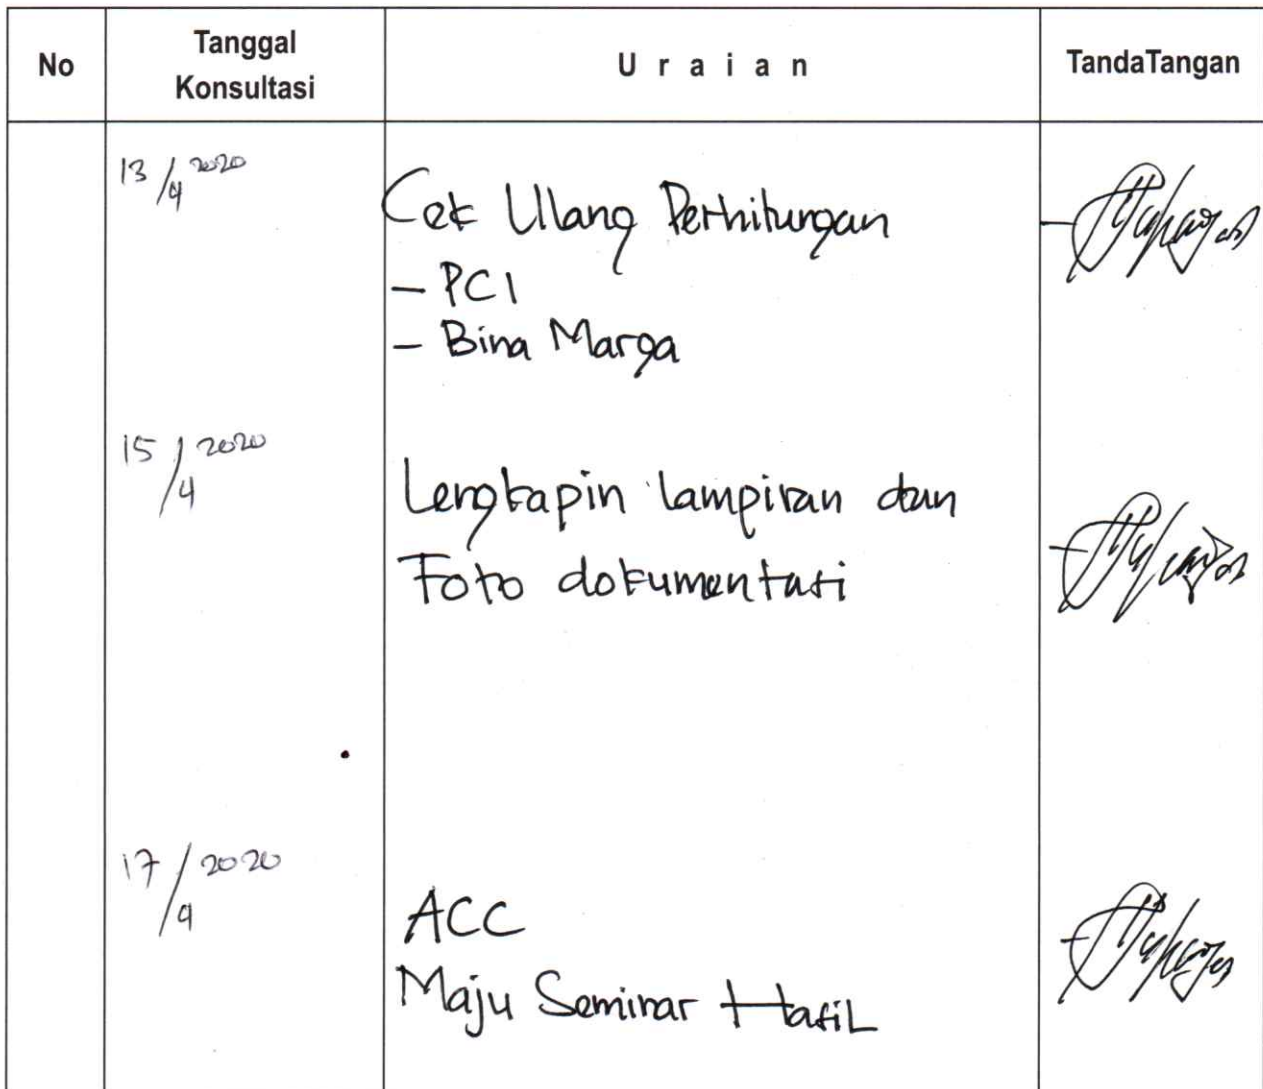 No
Tanggal
Konsultasi
Uraian
TandaTangan
13/4 2020
Cek Ulang Perhitungan
- PCI
- Bina Marga
15/4 2020
Lengkapin lampiran dan
Foto dokumentasi
17/4 2020
ACC
Maju Seminar Hasil